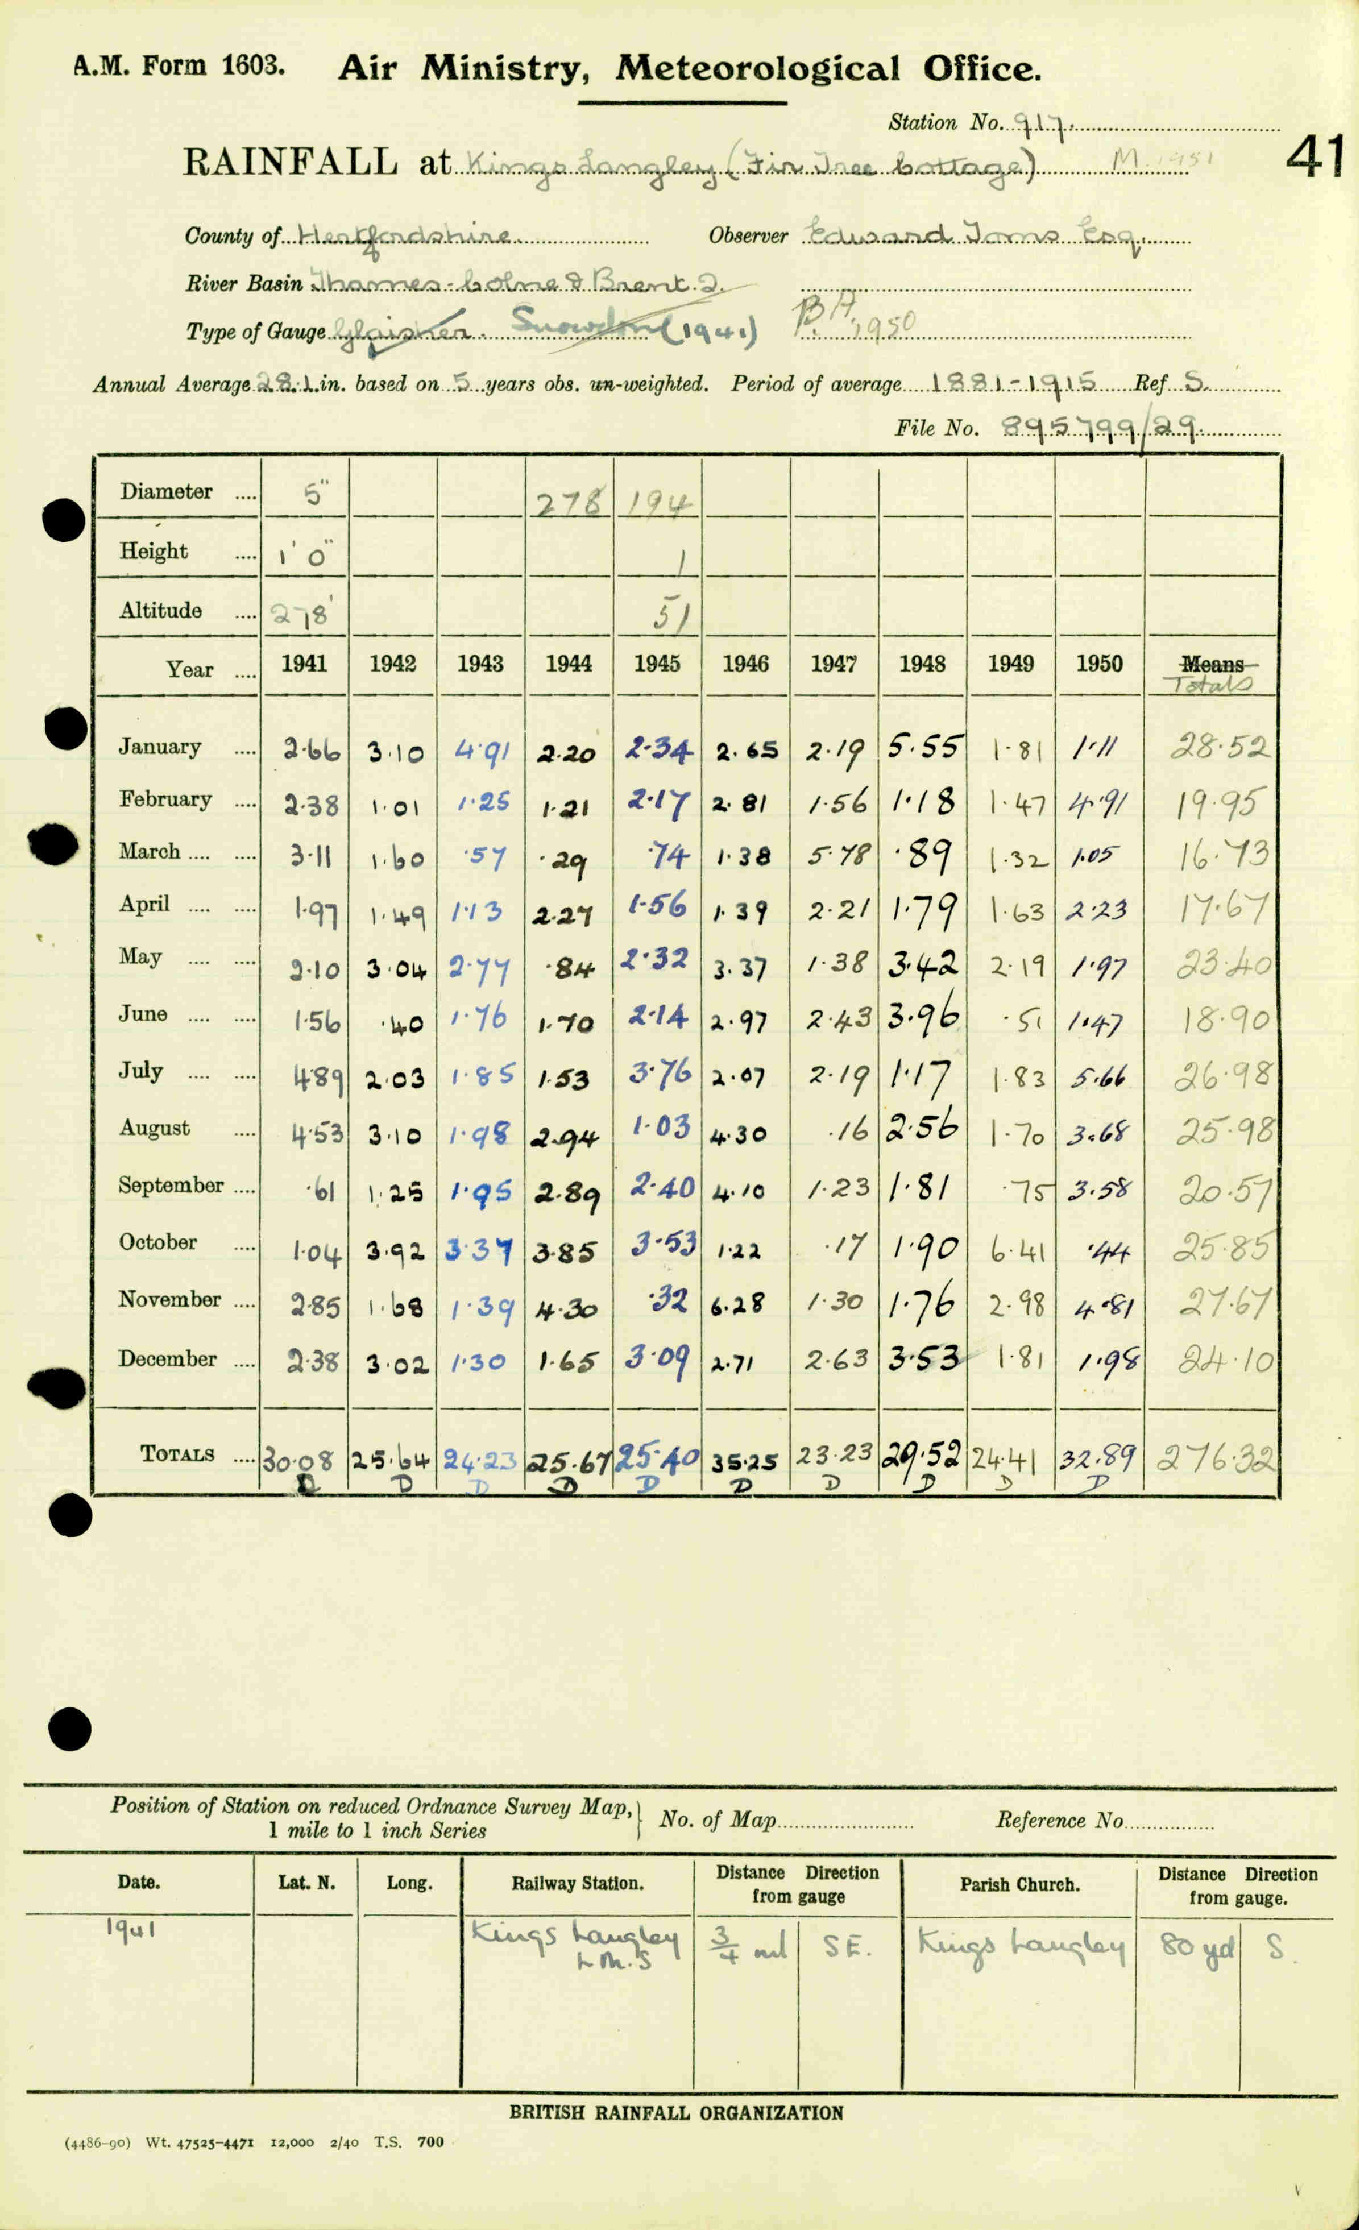 A.M. Form 1603. Air Ministry, Meteorological Office.
Station No. 917.
RAINFALL at Kings Langley (Fir Tree Cottage) M. 1951 41
County of Hertfordshire. Observer Edward Toms Esq.
River Basin Thames-Colne & Brent. 2.
Type of Gauge Glaisher. Snowdon (1941) 1950
Annual Average 28.1 in. based on 5 years obs. un-weighted. Period of average 1881-1915 Ref S.
File No. 895799/29.
Diameter .... 5" 278 194
Height .... 1' 0" 1
Altitude .... 278' 51
Year .... 1941 1942 1943 1944 1945 1946 1947 1948 1949 1950 Means
Totals
January .... 2.66 3.10 4.91 2.20 2.34 2.65 2.19 5.55 1.81 1.11 28.52
February .... 2.38 1.01 1.25 1.21 2.17 2.81 1.56 1.18 1.47 4.91 19.95
March .... .... 3.11 1.60 .57 .29 .74 1.38 5.78 .89 1.32 1.05 16.73
April .... .... 1.97 1.49 1.13 2.27 1.56 1.39 2.21 1.79 1.63 2.23 17.67
May .... .... 2.10 3.04 2.77 .84 2.32 3.37 1.38 3.42 2.19 1.97 23.40
June .... .... 1.56 .40 1.76 1.70 2.14 2.97 2.43 3.96 .51 1.47 18.90
July .... .... 4.89 2.03 1.85 1.53 3.76 2.07 2.19 1.17 1.83 5.66 26.98
August .... 4.53 3.10 1.98 2.94 1.03 4.30 .16 2.56 1.70 3.68 25.98
September .... .61 1.25 1.95 2.89 2.40 4.10 1.23 1.81 .75 3.58 20.57
October .... 1.04 3.92 3.37 3.85 3.53 1.22 .17 1.90 6.41 .44 25.85
November .... 2.85 1.68 1.39 4.30 .32 6.28 1.30 1.76 2.98 4.81 27.67
December .... 2.38 3.02 1.30 1.65 3.09 2.71 2.63 3.53 1.81 1.98 24.10
TOTALS .... 30.08 25.64 24.23 25.67 25.40 35.25 23.23 29.52 24.41 32.89 276.32
D D D D D D D D D D
Position of Station on reduced Ordnance Survey Map, } No. of Map Reference No.
1 mile to 1 inch Series
Date. Lat. N. Long. Railway Station. Distance Direction from gauge Parish Church. Distance Direction from gauge.
1941 Kings Langley 3/4 ml SE. Kings Langley 80 yd S.
L.M.S
BRITISH RAINFALL ORGANIZATION
(4486-90) Wt. 47525-4471 12,000 2/40 T.S. 700